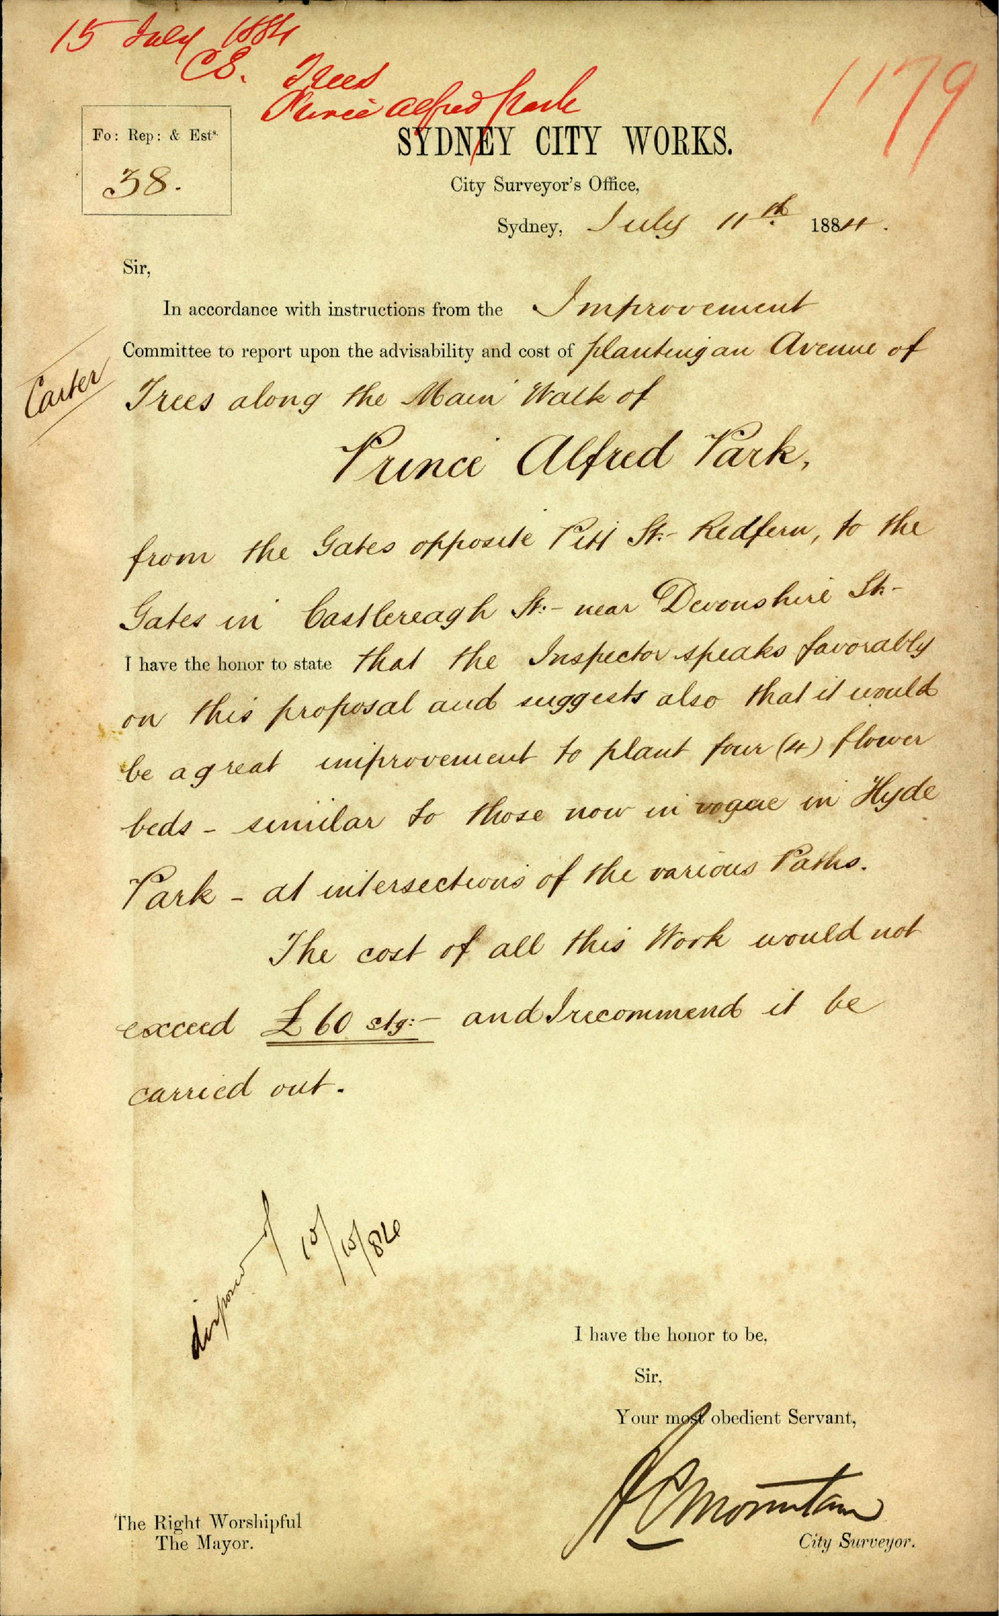 15 July 1884
CS. Trees
Prince Alfred Park
1179
Fo: Rep: & Ests.
38.
SYDNEY CITY WORKS.
City Surveyor's Office,
Sydney, July 11th 1884.
Sir,
In accordance with instructions from the Improvement
Committee to report upon the advisability and cost of planting an Avenue of
Carter
Trees along the Main Walk of
Prince Alfred Park,
from the Gates opposite Pitt St:- Redfern, to the
Gates in Castlereagh St:- near Devonshire St:-
I have the honor to state that the Inspector speaks favorably
on this proposal and suggests also that it would
be a great improvement to plant four (4) flower
beds - similar to those now in vogue in Hyde
Park - at intersections of the various Paths.
The cost of all this Work would not
exceed £60 stg:- and I recommend it be
carried out.
disposed of
I have the honor to be,
Sir,
Your most obedient Servant,
A C Mountain
City Surveyor.
The Right Worshipful
The Mayor.